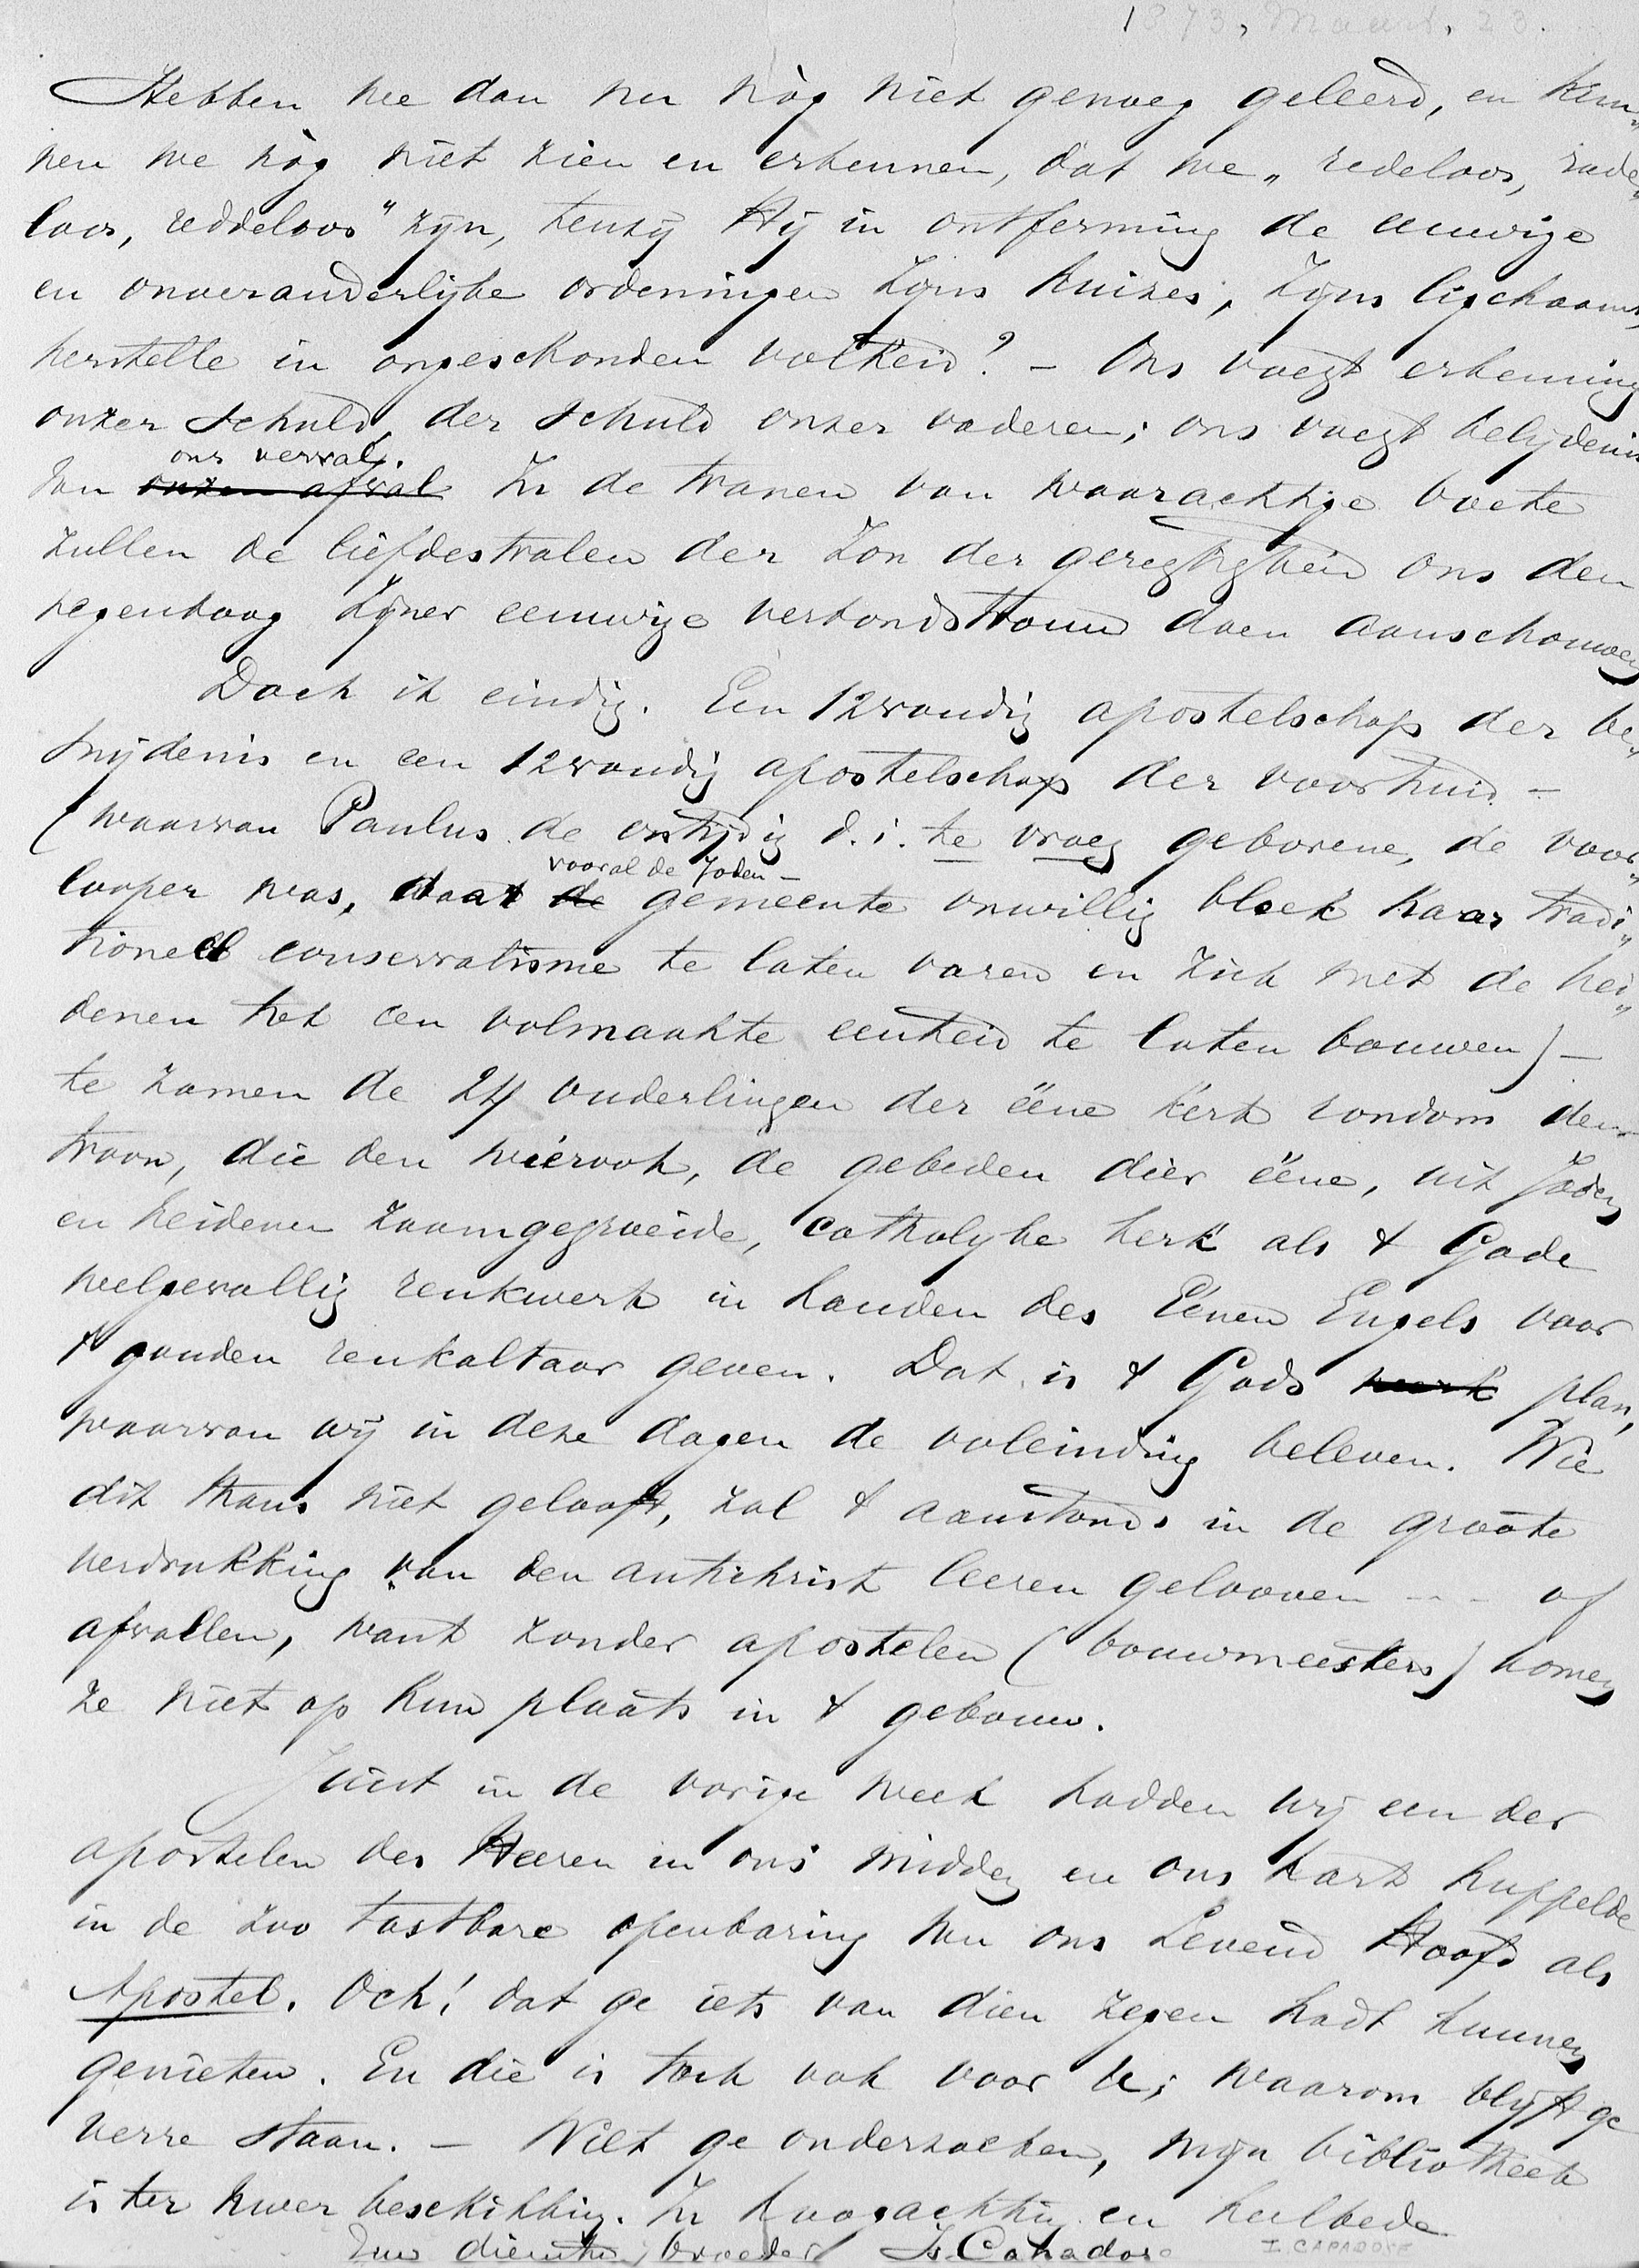 1873, Maart. 23.
Hebben we dan nu nòg niet genoeg geleerd, en kun„
nen we nòg niet zien en erkennen, dat we „redeloos, rade„
loos, reddeloos" zijn, tenzij Hij in ontferming de eeuwige
en onveranderlijke ordeningen Zijns huizes, Zijns ligchaams,
herstelle in ongeschonden volheid? – Ons voegt erkenning
onzer schuld, der schuld onzer vaderen; ons voegt belijdenis
ons verval.
van onzen afval In de tranen van waarachtige boete
zullen de liefdestralen der Zon der geregtigheid ons den
regenboog Zijner eeuwige verbondstrouw doen aanschouwen
Doch ik eindig. Een 12voudig apostelschap der be„
snijdenis en een 12voudig apostelschap der voorhuid –
(waarvan Paulus de ontijdig d.i. te vroeg geborene, de voor„
vooral de Joden –
looper was, daar de gemeente onwillig bleek haar tradi„
tioneel conservatisme te laten varen en zich met de hei„
denen tot een volmaakte eenheid te laten bouwen) –
te zamen de 24 ouderlingen der ééne kerk rondom den
troon, die den wierook, de gebeden dier ééne, uit Joden
en heidenen zaamgegroeide, catholyke kerk als 't Gode
welgevallig reukwerk in handen des Eénen Engels voor
't gouden reukaltaar geven. Dat is 't Gods werk plan,
waarvan wij in deze dagen de voleinding beleven. Wie
dit thans niet gelooft, zal 't aanstonds in de groote
verdrukking van den antichrist leeren gelooven --- of
afvallen, want zonder apostelen (bouwmeesters) komen
ze niet op hun plaats in 't gebouw.
Juist in de vorige week hadden wij een der
apostelen des Heeren in ons midden en ons hart huppelde
in de zoo tastbare openbaring van ons Levend Hoofd als
Apostel. Och! dat ge iets van dien zegen hadt kunnen
genieten. En die is toch ook voor U; waarom blijft ge
verre staan. – Wilt ge onderzoeken, mijn bibliotheek
is ter uwer beschikking. In hoogachting en heilbede
Uw dienstw. broeder Is. Capadose
I. CAPADOSE